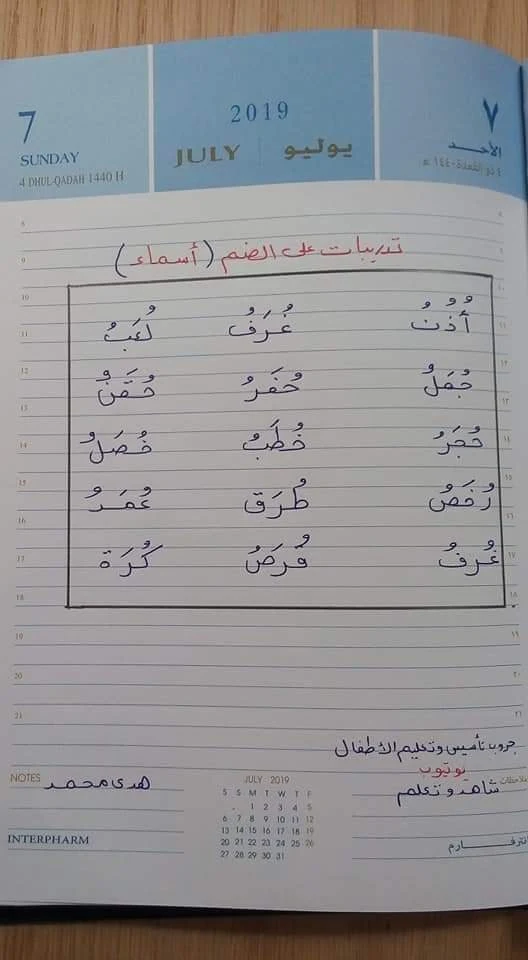 7 2019 ٧
SUNDAY JULY يوليو الأحد
4 DHUL-QADAH 1440 H ٤ ذو القعدة ١٤٤٠ هـ
تدريبات على الضم (أسماء)
8 ٨
9 ٩
10 ١٠
أُذُنُ غُرَفُ لُعَبُ
11 ١١
12 ١٢
جُمَلُ حُفَرُ حُقَنُ
13 ١٣
حُجَرُ خُطَبُ خُصَلُ
14 ١٤
15 ١٥
رُخَصُ طُرَق عُمَرُ
16 ١٦
غُرِفُ فُرَصُ كُرَة
17 ١٧
18 ١٨
19 ١٩
20 ٢٠
21 ٢١
جروب تأسيس وتعليم الأطفال
يوتيوب
NOTES هدى محمد JULY 2019 شاهد وتعلم ملاحظات
S S M T W T F
. . 1 2 3 4 5
6 7 8 9 10 11 12
13 14 15 16 17 18 19
20 21 22 23 24 25 26
27 28 29 30 31
INTERPHARM انترفارم